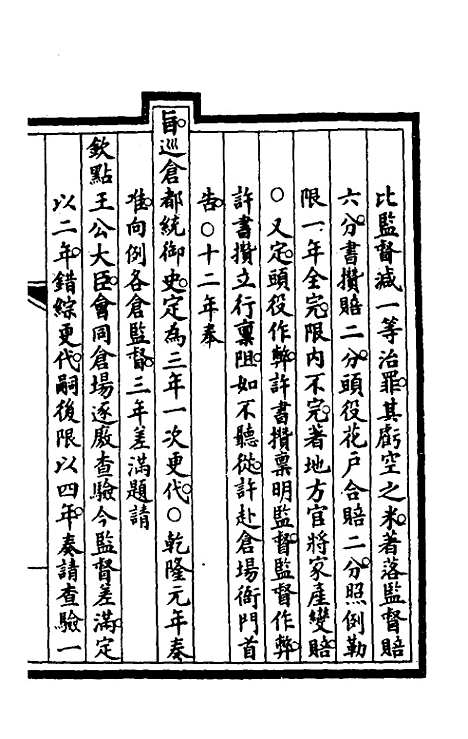 比監督減一等治罪其虧空之米著落監督賠
六分書攢賠二分頭役花戶合賠二分照例勒
限一年全完限內不完著地方官將家產變賠
○又定頭役作弊許書攢稟明監督監督作弊
許書攢立行稟阻如不聽從許赴倉場衙門首
告○十二年奉
旨巡倉都統御史定為三年一次更代○乾隆元年奏
准向例各倉監督三年差滿題請
欽點王公大臣會同倉場逐廒查驗今監督差滿定
以二年錯綜更代嗣後限以四年奏請查驗一